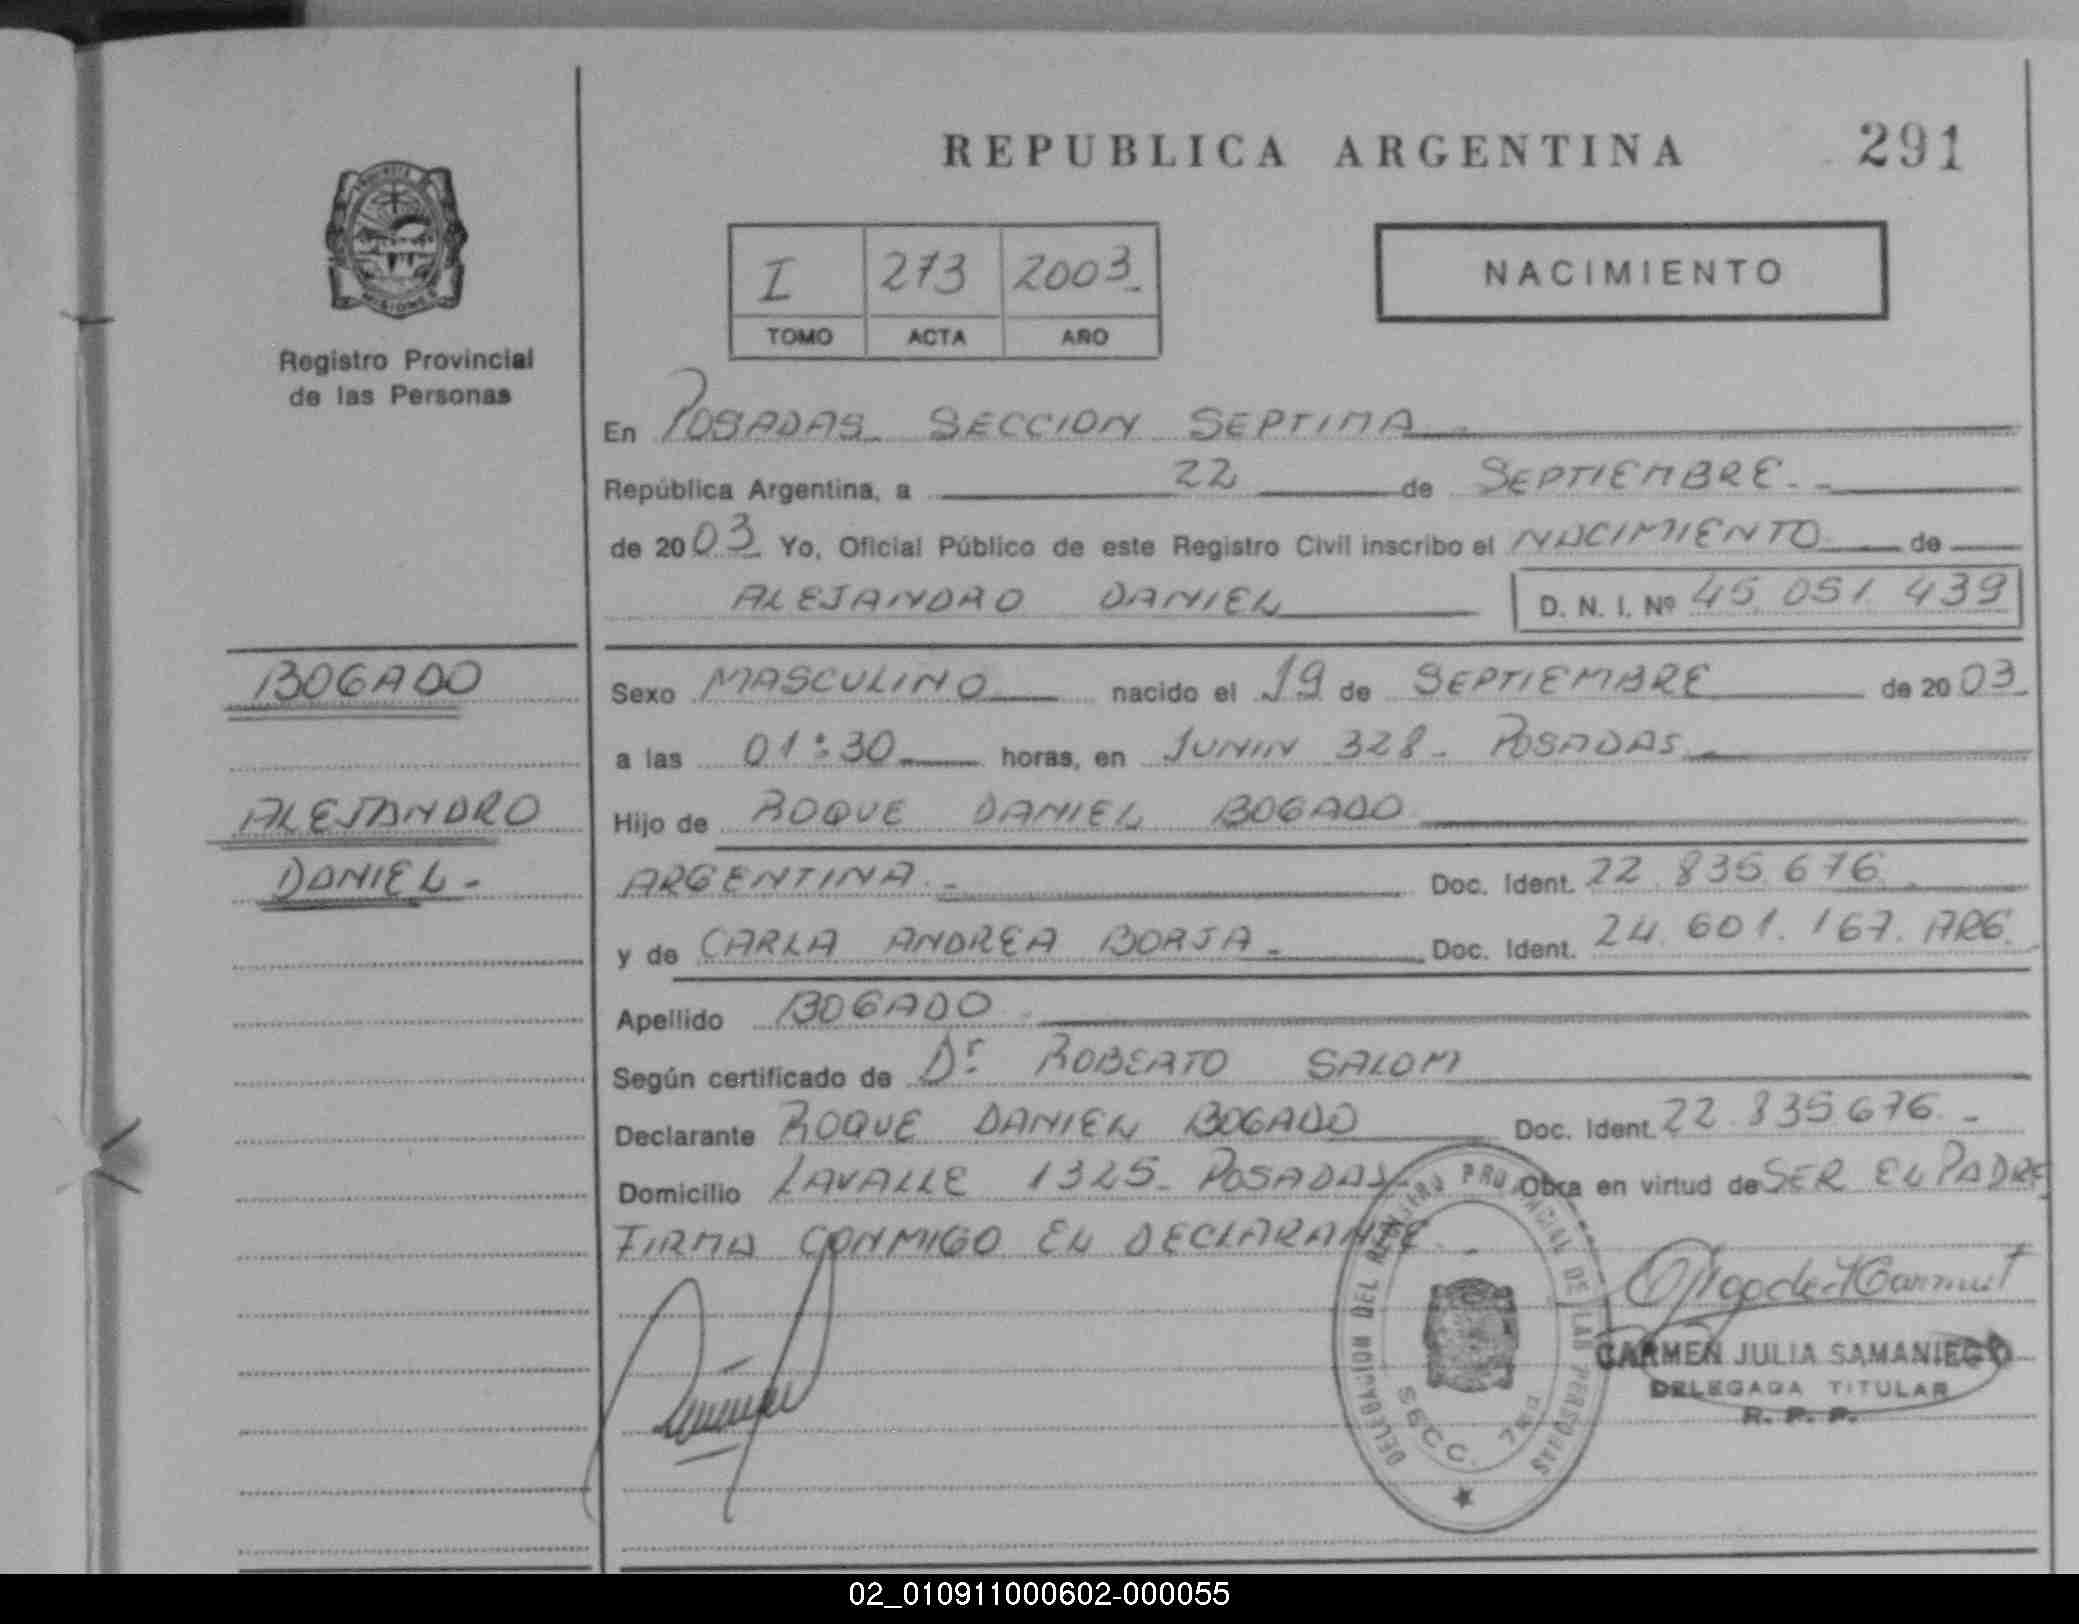 REPUBLICA ARGENTINA 291
I 273 2003
TOMO ACTA AÑO
NACIMIENTO
PROVINCIA DE MISIONES
Registro Provincial
de las Personas
En POSADAS SECCION SEPTIMA
República Argentina, a 22 de SEPTIEMBRE
de 2003 Yo, Oficial Público de este Registro Civil inscribo el NACIMIENTO de
ALEJANDRO DANIEL D. N. I. Nº 45 051 439
BOGADO
ALEJANDRO
DANIEL
Sexo MASCULINO nacido el 19 de SEPTIEMBRE de 2003
a las 01:30 horas, en JUNIN 328 - POSADAS
Hijo de ROQUE DANIEL BOGADO
ARGENTINA Doc. Ident. 22.835.676
y de CARLA ANDREA BORJA Doc. Ident. 24.601.167. ARG.
Apellido BOGADO
Según certificado de Dr ROBERTO SALOM
Declarante ROQUE DANIEL BOGADO Doc. Ident. 22.835.676
Domicilio LAVALLE 1325 - POSADAS Obra en virtud de SER EL PADRE
FIRMA CONMIGO EL DECLARANTE
DELEGACION DEL REGISTRO PROVINCIAL DE LAS PERSONAS
SECC. 7ma
CARMEN JULIA SAMANIEGO
DELEGADA TITULAR
R. P. P.
02_010911000602-000055